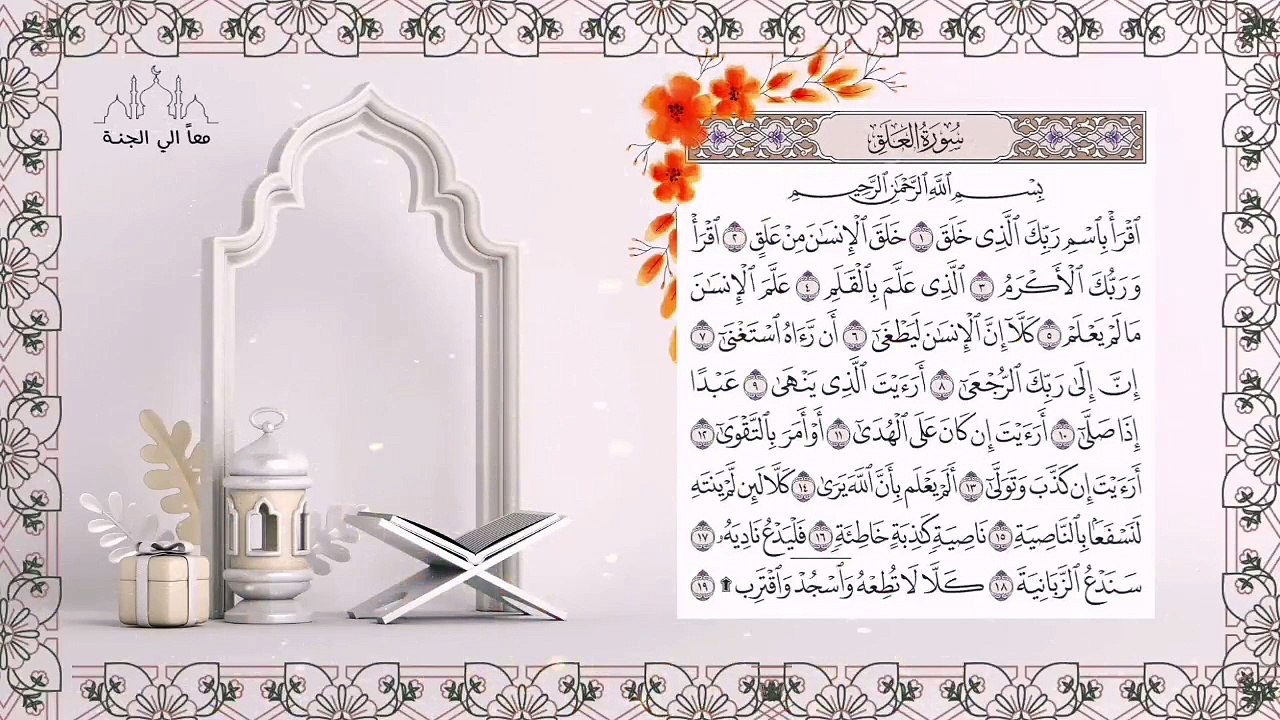 معاً الي الجنة
سُورَةُ العَلَقِ
بِسْمِ ٱللَّهِ ٱلرَّحْمَٰنِ ٱلرَّحِيمِ
ٱقْرَأْ بِٱسْمِ رَبِّكَ ٱلَّذِى خَلَقَ ١ خَلَقَ ٱلْإِنسَٰنَ مِنْ عَلَقٍ ٢ ٱقْرَأْ
وَرَبُّكَ ٱلْأَكْرَمُ ٣ ٱلَّذِى عَلَّمَ بِٱلْقَلَمِ ٤ عَلَّمَ ٱلْإِنسَٰنَ
مَا لَمْ يَعْلَمْ ٥ كَلَّآ إِنَّ ٱلْإِنسَٰنَ لَيَطْغَىٰٓ ٦ أَن رَّءَاهُ ٱسْتَغْنَىٰٓ ٧
إِنَّ إِلَىٰ رَبِّكَ ٱلرُّجْعَىٰٓ ٨ أَرَءَيْتَ ٱلَّذِى يَنْهَىٰ ٩ عَبْدًا
إِذَا صَلَّىٰٓ ١٠ أَرَءَيْتَ إِن كَانَ عَلَى ٱلْهُدَىٰٓ ١١ أَوْ أَمَرَ بِٱلتَّقْوَىٰٓ ١٢
أَرَءَيْتَ إِن كَذَّبَ وَتَوَلَّىٰٓ ١٣ أَلَمْ يَعْلَم بِأَنَّ ٱللَّهَ يَرَىٰ ١٤ كَلَّا لَئِن لَّمْ يَنتَهِ
لَنَسْفَعًۢا بِٱلنَّاصِيَةِ ١٥ نَاصِيَةٍ كَٰذِبَةٍ خَاطِئَةٍ ١٦ فَلْيَدْعُ نَادِيَهُۥ ١٧
سَنَدْعُ ٱلزَّبَانِيَةَ ١٨ كَلَّا لَا تُطِعْهُ وَٱسْجُدْ وَٱقْتَرِب ۩ ١٩